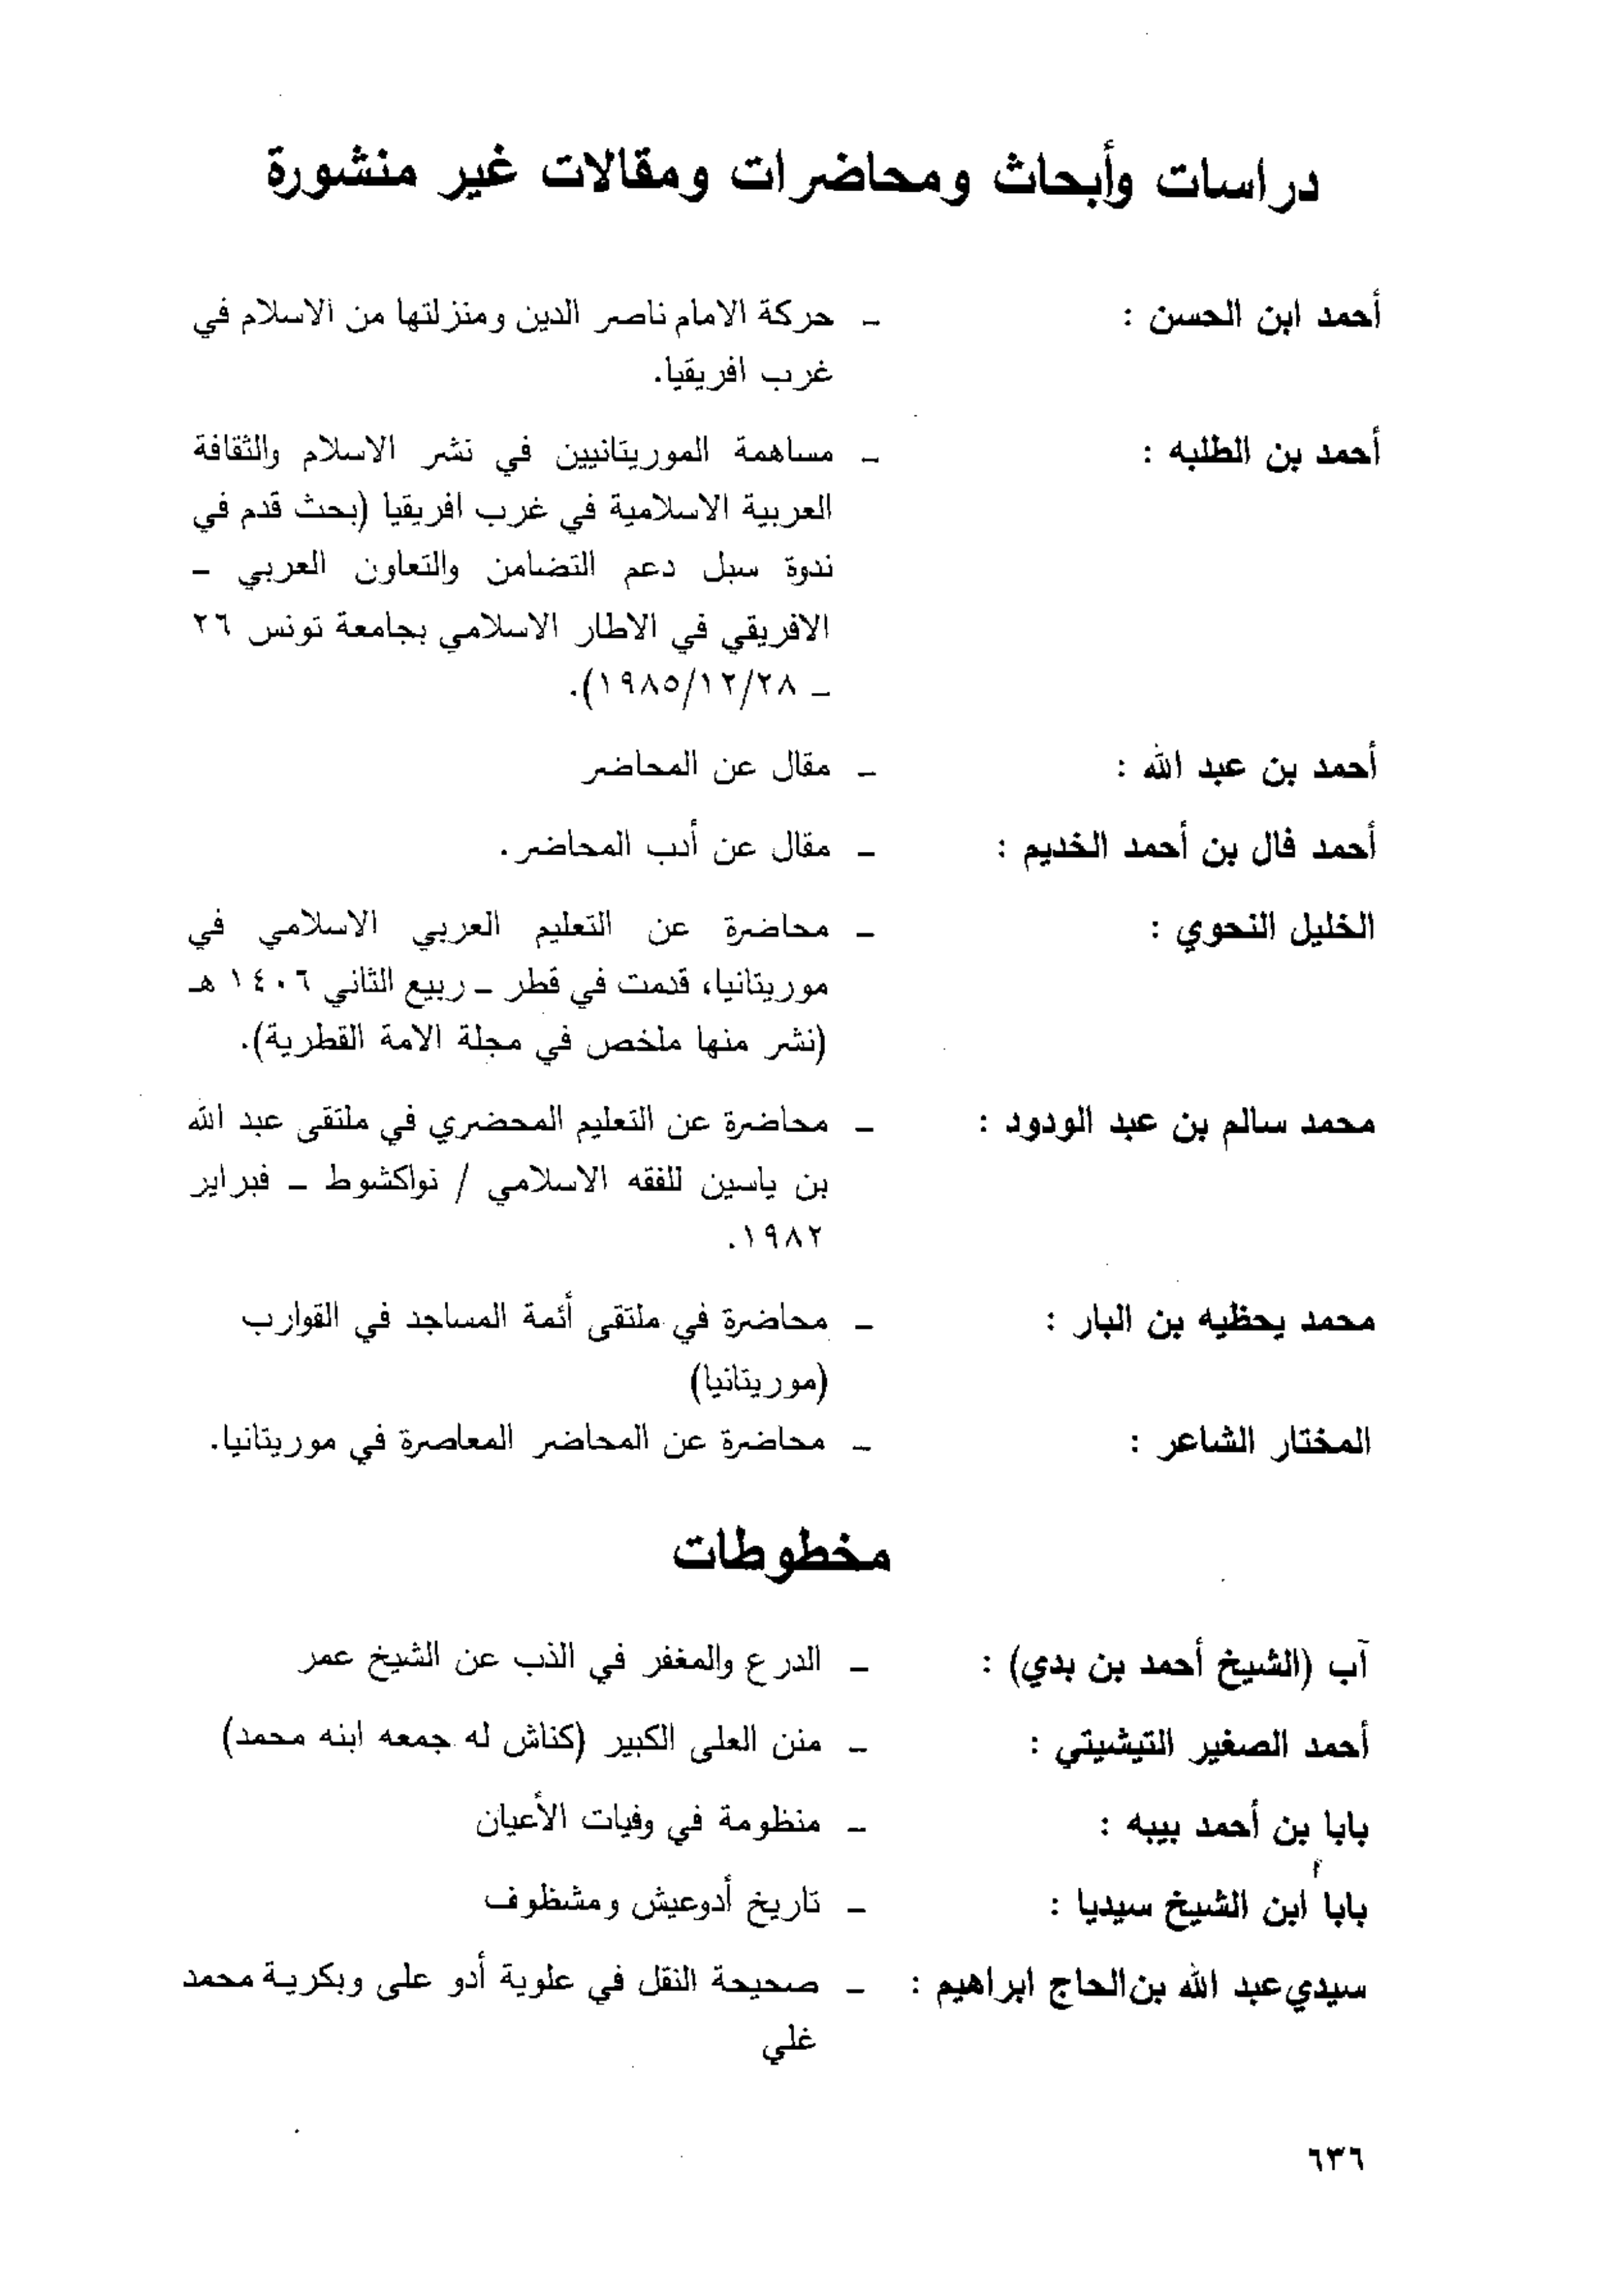 دراسات وأبحاث ومحاضرات ومقالات غير منشورة
أحمد ابن الحسن : ـ حركة الامام ناصر الدين ومنزلتها من الاسلام في
غرب افريقيا.
أحمد بن الطلبه : ـ مساهمة الموريتانيين في نشر الاسلام والثقافة
العربية الاسلامية في غرب افريقيا (بحث قدم في
ندوة سبل دعم التضامن والتعاون العربي ـ
الافريقي في الاطار الاسلامي بجامعة تونس ٢٦
ـ ١٩٨٥/١٢/٢٨).
أحمد بن عبد الله : ـ مقال عن المحاضر
أحمد فال بن أحمد الخديم : ـ مقال عن أدب المحاضر.
الخليل النحوي : ـ محاضرة عن التعليم العربي الاسلامي في
موريتانيا، قدمت في قطر ـ ربيع الثاني ١٤٠٦ هـ
(نشر منها ملخص في مجلة الامة القطرية).
محمد سالم بن عبد الودود : ـ محاضرة عن التعليم المحضري في ملتقى عبد الله
بن ياسين للفقه الاسلامي / نواكشوط ـ فبراير
١٩٨٢.
محمد يحظيه بن البار : ـ محاضرة في ملتقى أئمة المساجد في القوارب
(موريتانيا)
المختار الشاعر : ـ محاضرة عن المحاضر المعاصرة في موريتانيا.
مخطوطات
آب (الشيخ أحمد بن بدي) : ـ الدرع والمغفر في الذب عن الشيخ عمر
أحمد الصغير التيشيتي : ـ منن العلى الكبير (كناش له جمعه ابنه محمد)
بابا بن أحمد بيبه : ـ منظومة في وفيات الأعيان
بابا ابن الشيخ سيديا : ـ تاريخ أدوعيش ومشظوف
سيدي عبد الله بن الحاج ابراهيم : ـ صحيحة النقل في علوية أدو على وبكرية محمد
غلي
٦٣٦